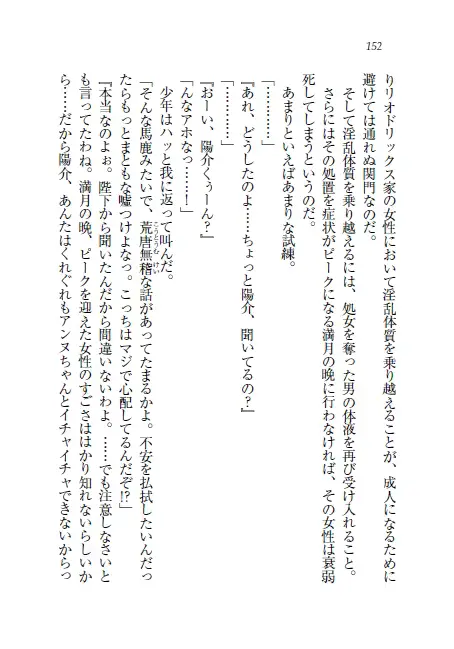 152
りリオドリックス家の女性において淫乱体質を乗り越えることが、成人になるために
避けては通れぬ関門なのだ。
そして淫乱体質を乗り越えるには、処女を奪った男の体液を再び受け入れること。
さらにはその処置を症状がピークになる満月の晩に行わなければ、その女性は衰弱
死してしまうというのだ。
あまりといえばあまりな試練。
「…………」
『あれ、どうしたのよ……ちょっと陽介、聞いてるの？』
「…………」
『おーい、陽介くぅーん？』
「んなアホなっ……！」
少年はハッと我に返って叫んだ。
「そんな馬鹿みたいで、荒唐無稽な話があってたまるかよ。不安を払拭したいんだっ
こうとうむけい
たらもっとまともな嘘つけよなっ。こっちはマジで心配してるんだぞ!?」
『本当なのよぉ。陛下から聞いたんだから間違いないわよ。……でも注意しなさいと
も言ってたわね。満月の晩、ピークを迎えた女性のすごさははかり知れないらしいか
ら……だから陽介、あんたはくれぐれもアンヌちゃんとイチャイチャできないからっ